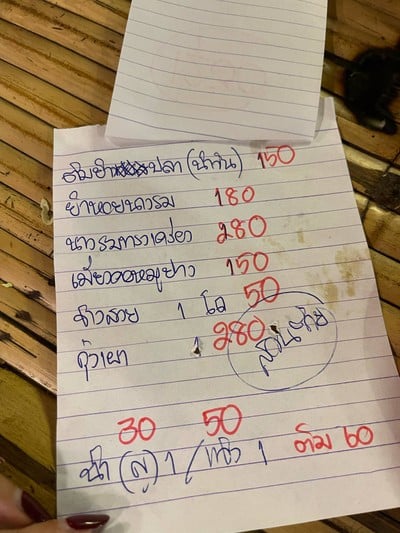 ต้มยำปลา (น้ำข้น) 150
ยำหอยนางรม 180
นางรมทรงเครื่อง 280
เมี่ยงคอหมูย่าง 150
ข้าวสวย 1 โถ 50
กุ้งเผา 1 280
30 50
น้ำ 1 / 1 ต้ม 60